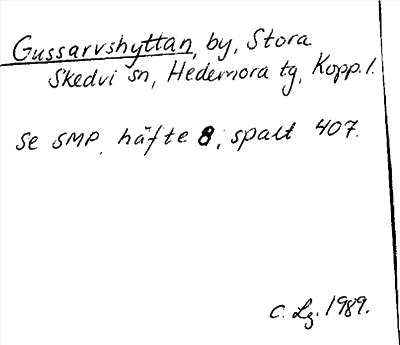 Gussarvshyttan, by, Stora
Skedvi sn, Hedemora tg, Kopp. l.
se SMP, häfte 8, spalt 407.
C. Lg. 1989.